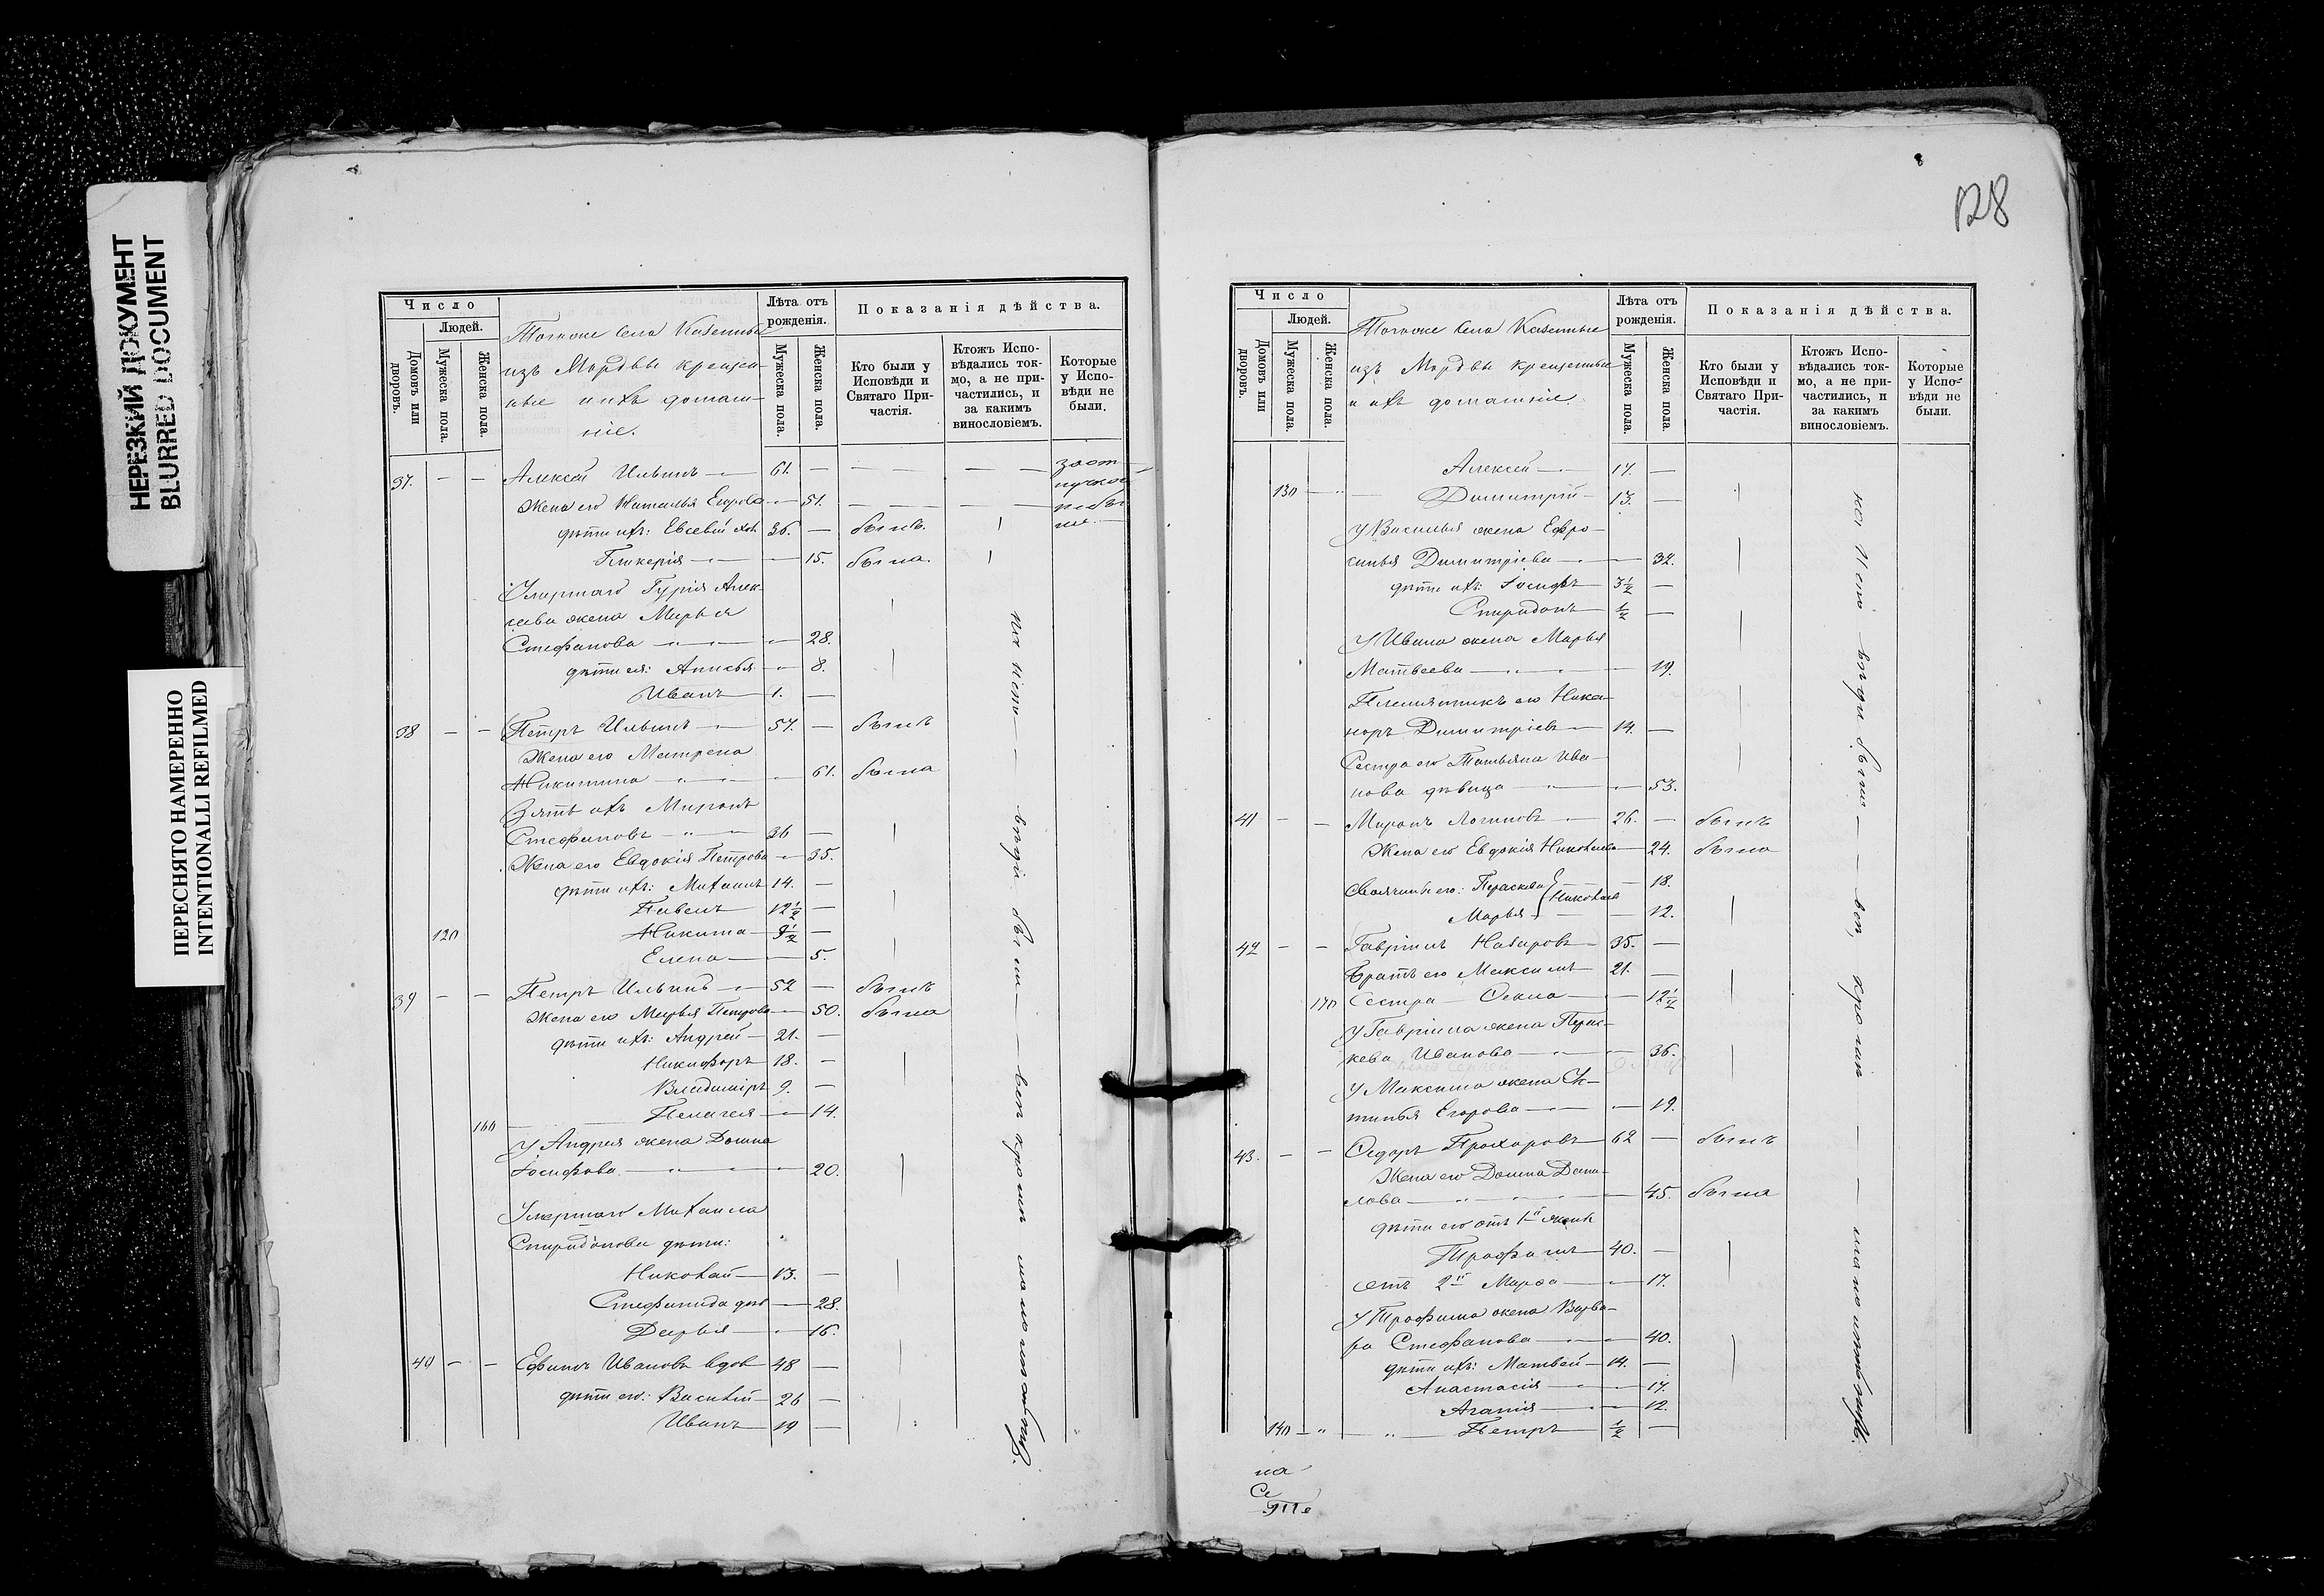 НЕРЕЗКИЙ ДОКУМЕНТ
BLURRED DOCUMENT
ПЕРЕСНЯТО НАМЕРЕННО
INTENTIONALLI REFILMED
Число
Людей.
Домовъ или дворовъ.
Мужеска пола.
Женска пола.
Тогоже Села Казенные
изъ Мордвы крещен-
ные и ихъ домаш-
ніе.
Лѣта отъ рожденія.
Мужеска пола.
Женска пола.
Показанія дѣйства.
Кто были у Исповѣди и Святаго При-частія.
Ктожъ Испо-вѣдались ток-мо, а не при-частились, и за какимъ винословіемъ.
Которые у Испо-вѣди не были.
37. — — Алексѣй Ильинъ 61. —
Жена его Наталья Егорова — 51.
дѣти ихъ: Евсевій 36. — былъ.
Гликерія — 15. была.
Умершаго Гурія Алек-
сѣева жена Марья
Стефанова — 28.
дѣти ея: Анисья — 8.
Иванъ 1. —
38 — — Петръ Ильинъ 57. — былъ
Жена его Матрена
Никитина — 61. была
Зять ихъ Миронъ
Стефановъ 36 —
Жена его Евдокія Петрова — 35.
дѣти ихъ: Михаилъ 14. —
Павелъ 12½ —
120 Никита 9½ —
Елена — 5.
39 — — Петръ Ильинъ 52 — былъ
Жена его Марья Петрова — 50. была
дѣти ихъ: Андрей 21. —
Никифоръ 18. —
Владиміръ 9. —
160 Пелагея — 14.
У Андрея жена Домна
Іосифова — 20.
Умершаго Михаила
Спиридонова дѣти:
Николай 13. —
Стефанида — 28.
Дарья — 16.
40 — — Ефимъ Ивановъ вдов 48 —
дѣти его: Василій 26 —
Иванъ 19 —
128
Число
Людей.
Домовъ или дворовъ.
Мужеска пола.
Женска пола.
Тогоже Села Казенные
изъ Мордвы крещенные
и ихъ домашніе.
Лѣта отъ рожденія.
Мужеска пола.
Женска пола.
Показанія дѣйства.
Кто были у Исповѣди и Святаго При-частія.
Ктожъ Испо-вѣдались ток-мо, а не при-частились, и за какимъ винословіемъ.
Которые у Испо-вѣди не были.
Алексѣй 17. —
130 Димитрій 13. —
У Василья жена Ефро-
синья Димитріева — 32.
дѣти ихъ: Іосифъ 3½ —
Спиридонъ ½ —
У Ивана жена Марья
Матвѣева — 19.
Племянникъ его Ника-
норъ Димитріевъ 14. —
Сестра его Татьяна Ива-
нова дѣвица — 53.
41 — — Миронъ Логиновъ 26. — былъ
Жена его Евдокія Николаева — 24. была
Своячины его: Параскева } Николаевы — 18.
Марья — 12.
42 — — Гавріилъ Назаровъ 35. —
Братъ его Максимъ 21. —
170 Сестра Ѳекла — 12½
У Гавріила жена Парас-
кева Иванова — 36.
У Максима жена Ус-
тинья Егорова — 19.
43. — — Ѳедоръ Прохоровъ 62 — былъ
Жена его Домна Дани-
лова — 45. была
дѣти его отъ 1й жены
Трофимъ 40. —
отъ 2й Марѳа — 17.
У Трофима жена Варва-
ра Стефанова — 40.
дѣти ихъ: Матвѣй 14. —
Анастасія — 17.
Агапія — 12.
140 Петръ ½ —